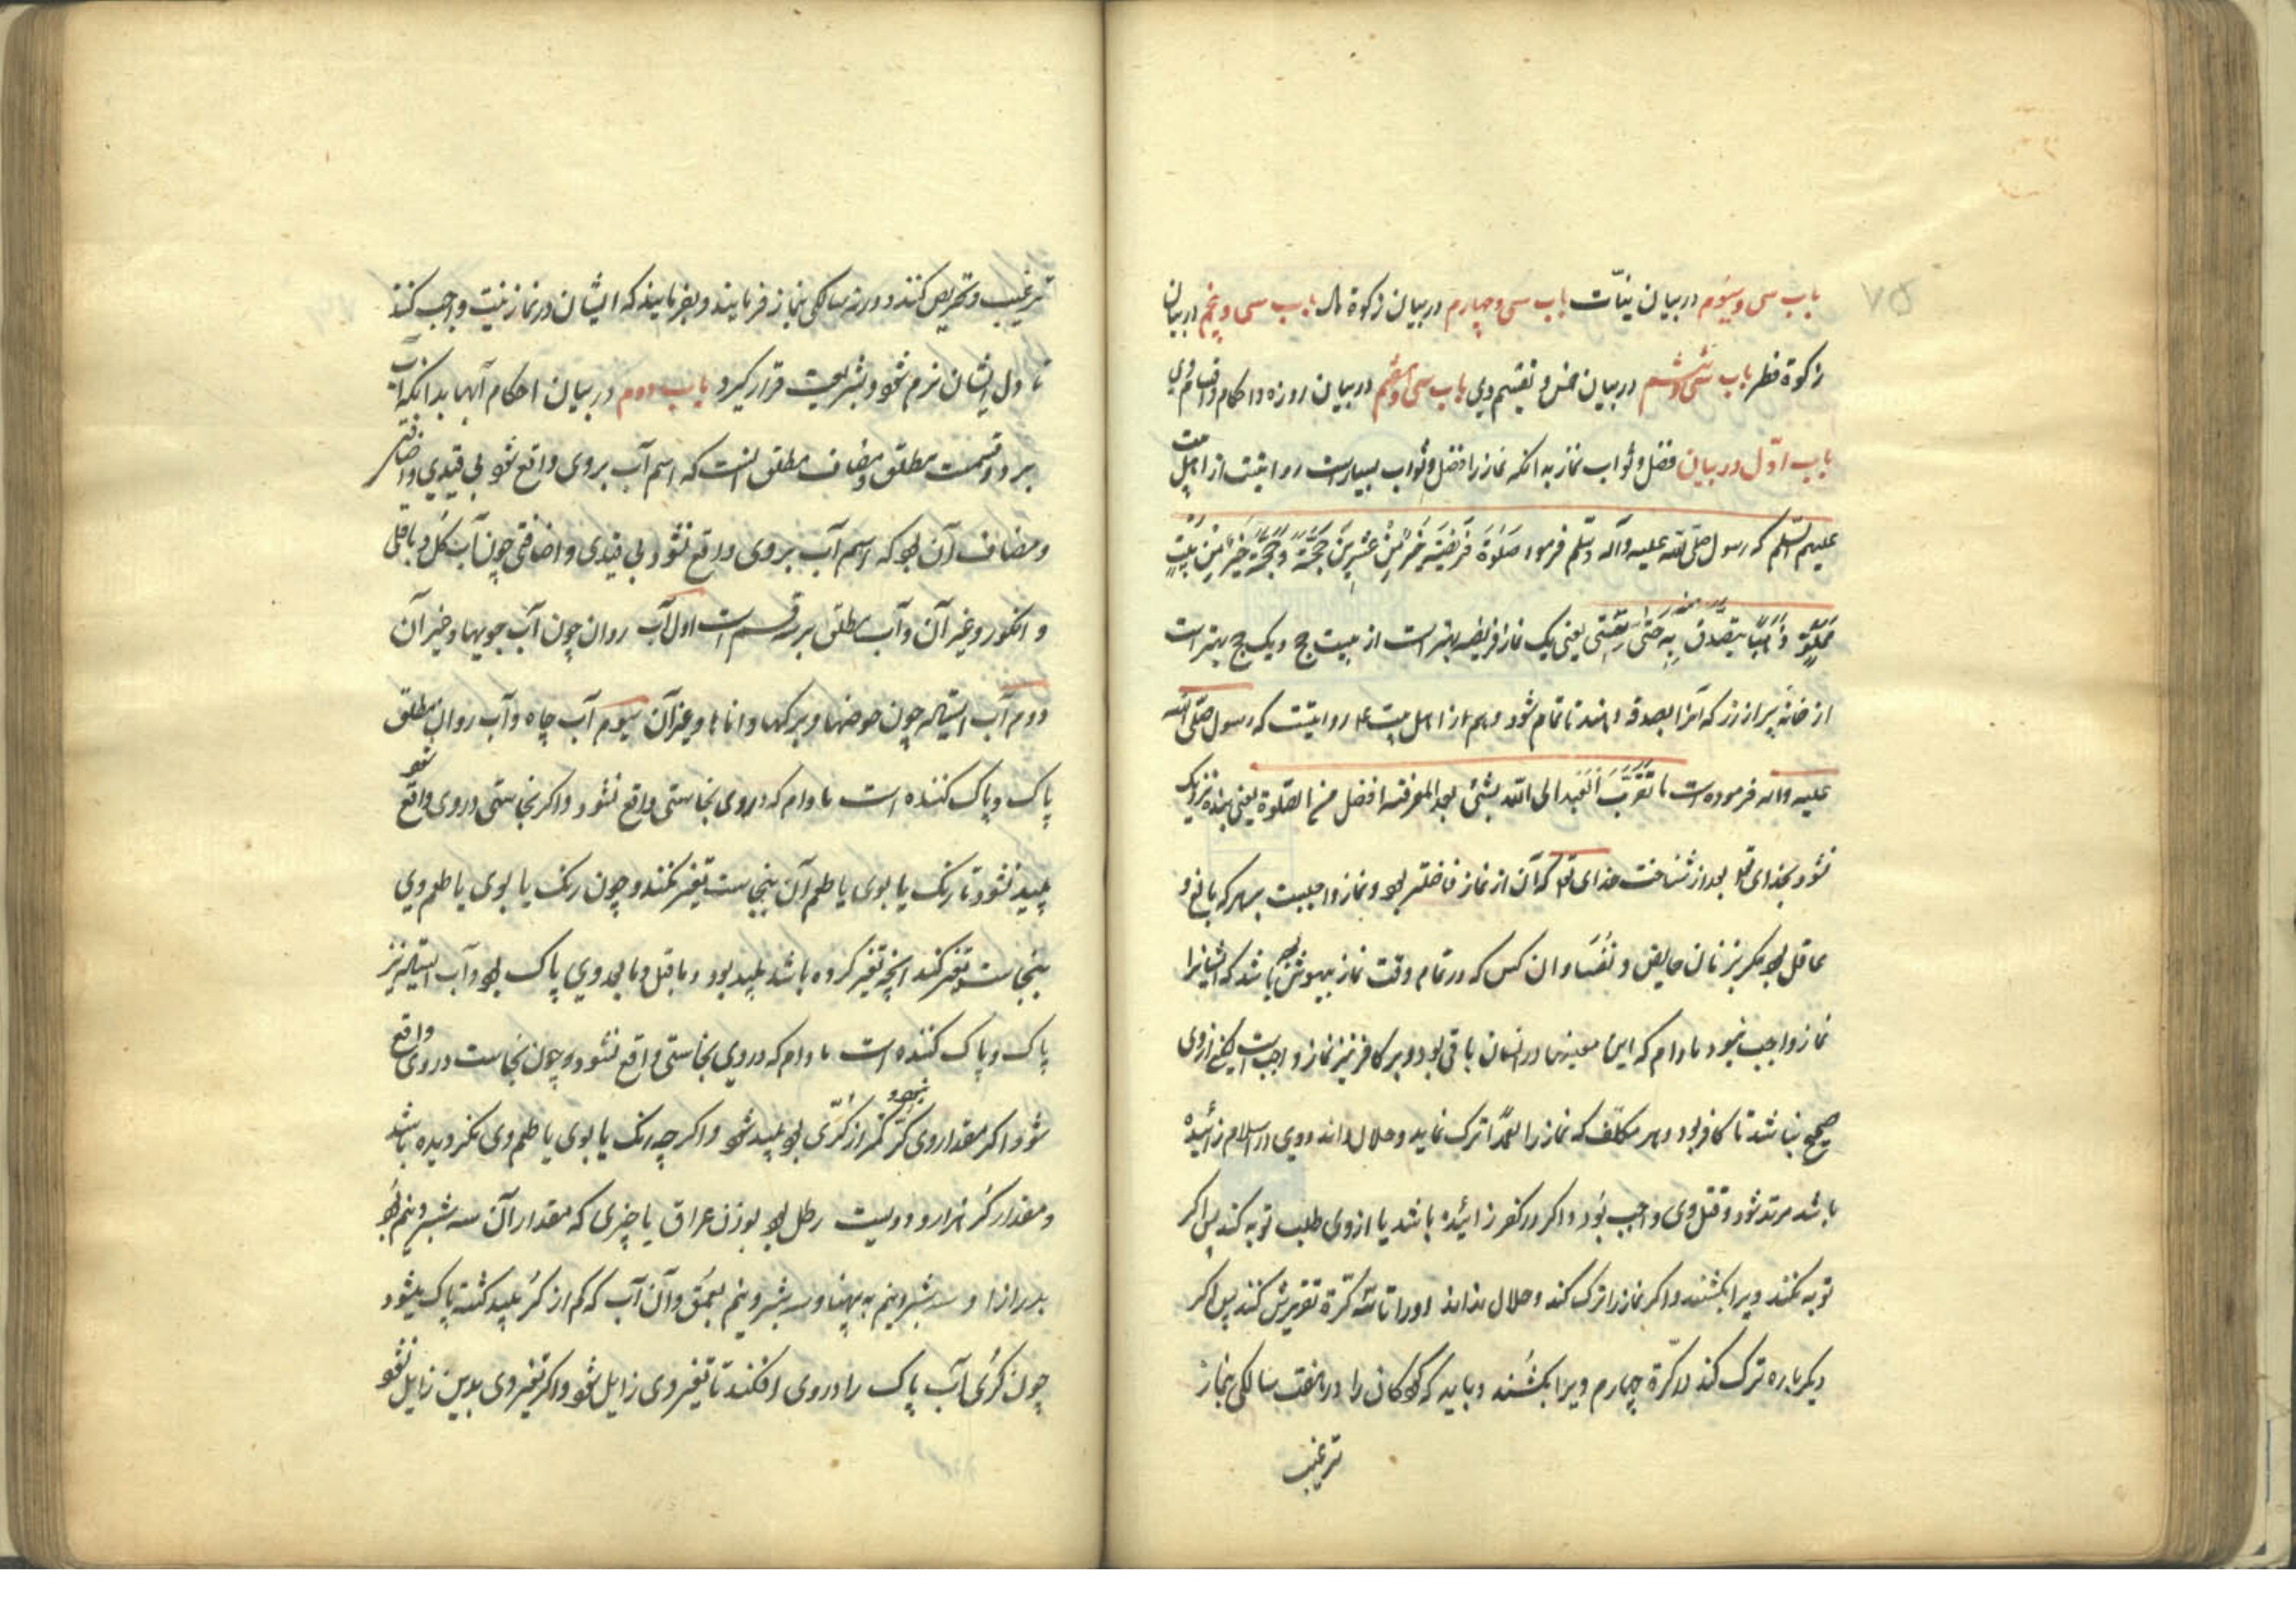 باب سی و سیوم در بیان نیّات باب سی و چهارم در بیان زکوة مال باب سی و پنجم در بیان
زکوة فطر باب سی و ششم در بیان خمس و تقسیم وی باب سی و هفتم در بیان روزه و احکام و اقسام وی
باب اوّل در بیان فضل و ثواب نماز بدانکه نماز را فضل و ثواب بسیارست روایتست از اهل بیت
علیهم السّلم که رسول صلی الله علیه وآله وسلّم فرمود صَلوٰةُ فَرِیضَةٍ خَیْرٌ مِنْ عِشْرِینَ حَجَّةً وَحَجَّةٌ خَیْرٌ مِنْ بَیْتٍ
مَمْلُوٍّ ذَهَبًا یتصدّق بِهِ حَتّیٰ یعنی یک نماز فریضه بهتر است از بیست حج و یک حج بهتر است
از خانهٔ پر از زر که آنرا بصدقه دهند تا تمام شود و هم از اهل بیت ع روایتست که رسول صلّی الله
علیه وآله فرموده است ما تَقَرَّبَ العَبد الی الله بشیْ بعد المعرفة افضل من الصّلوة یعنی بنده نزدیک
نشود بخدای تعا بعد از شناخت خدای تعا که آن از نماز فاضلتر بود و نماز واجبست بر هر که بالغ و
عاقل بود مگر بر زنان حایض و نُفَسا و ان کس که در تمام وقت نماز بیهوش باشد که ایشانرا
نماز واجب نبود مادام که این معنیها در ایشان باقی بود و بر کافر نیز نماز واجب است لیکن از وی
صحیح نباشد تا کافر بود و هر مکلّف که نماز را تعمدًا ترک نماید و حلال داند و وی در اسلام زائیده
باشد مرتد شود و قتل وی واجب بُود و اکر در کفر زائیده باشد یا از وی طلب توبه کند پس اکر
توبه نکند ویرا بکشند و اکر نماز را ترک کند و حلال نداند او را تا سه کرّة تعزیرش کنند پس اکر
دیکرباره ترک کند در کرّة چهارم ویرا بکشند و باید که کودکان را در هفت سالکی بنماز
ترغیب
ترغیب و تحریص کنند و در نه سالکی بنماز فرمایند و بفرمایند که ایشان در نماز نیّت واجب کنند
تا دل ایشان نرم شود و بشریعت قرار کیرد باب دوم در بیان احکام آبها بدانکه آب
بر دو قسمت مطلق و مضاف مطلق انست که اسم آب بر وی واقع شود بی قیدی و اضافتی
و مضاف آن بود که اسم آب بر وی واقع نشود بی قیدی و اضافتی چون آب کُل و باقلی
و انکور و غیر آن و آب مطلق بر سه قسم است اول آب روان چون آب جویها و غیر آن
دوم آب ایستاده چون حوضها و برکها و اناها و غیر آن سیوم آب چاه و آب روان مطلق
پاک و پاک کننده است مادام که در وی نجاستی واقع نشود و اکر نجاستی در وی واقع شود
پلید نشود تا رنک یا بوی یا طعم آن بنجاست تغیّر نکند و چون رنک یا بوی یا طعم وی
بنجاست تغیر کند انچه تغیّر کرده باشد پلید بود و ماقبل و مابعد وی پاک بود و آب ایستاده نیز
پاک و پاک کننده است مادام که در وی نجاستی واقع نشود و چون نجاست در وی واقع
شود اکر مقدار وی کمتر از کُرّی بود پلید شود و اکرچه رنک یا بوی یا طعم وی نکردیده باشد
و مقدار کُر هزار و دویست رطل بود بوزن عراق یا چیزی که مقدار آن سه شبر و نیم بُود
بدرازا و سه شبر و نیم به پهنا و سه شبر و نیم بعمق و آن آب که کم از کُر پلید کشته پاک میشود
چون کُرّی آب پاک را در وی افکنند تا تغیر وی زایل شود و اکر تغیر وی بدین زایل نشود